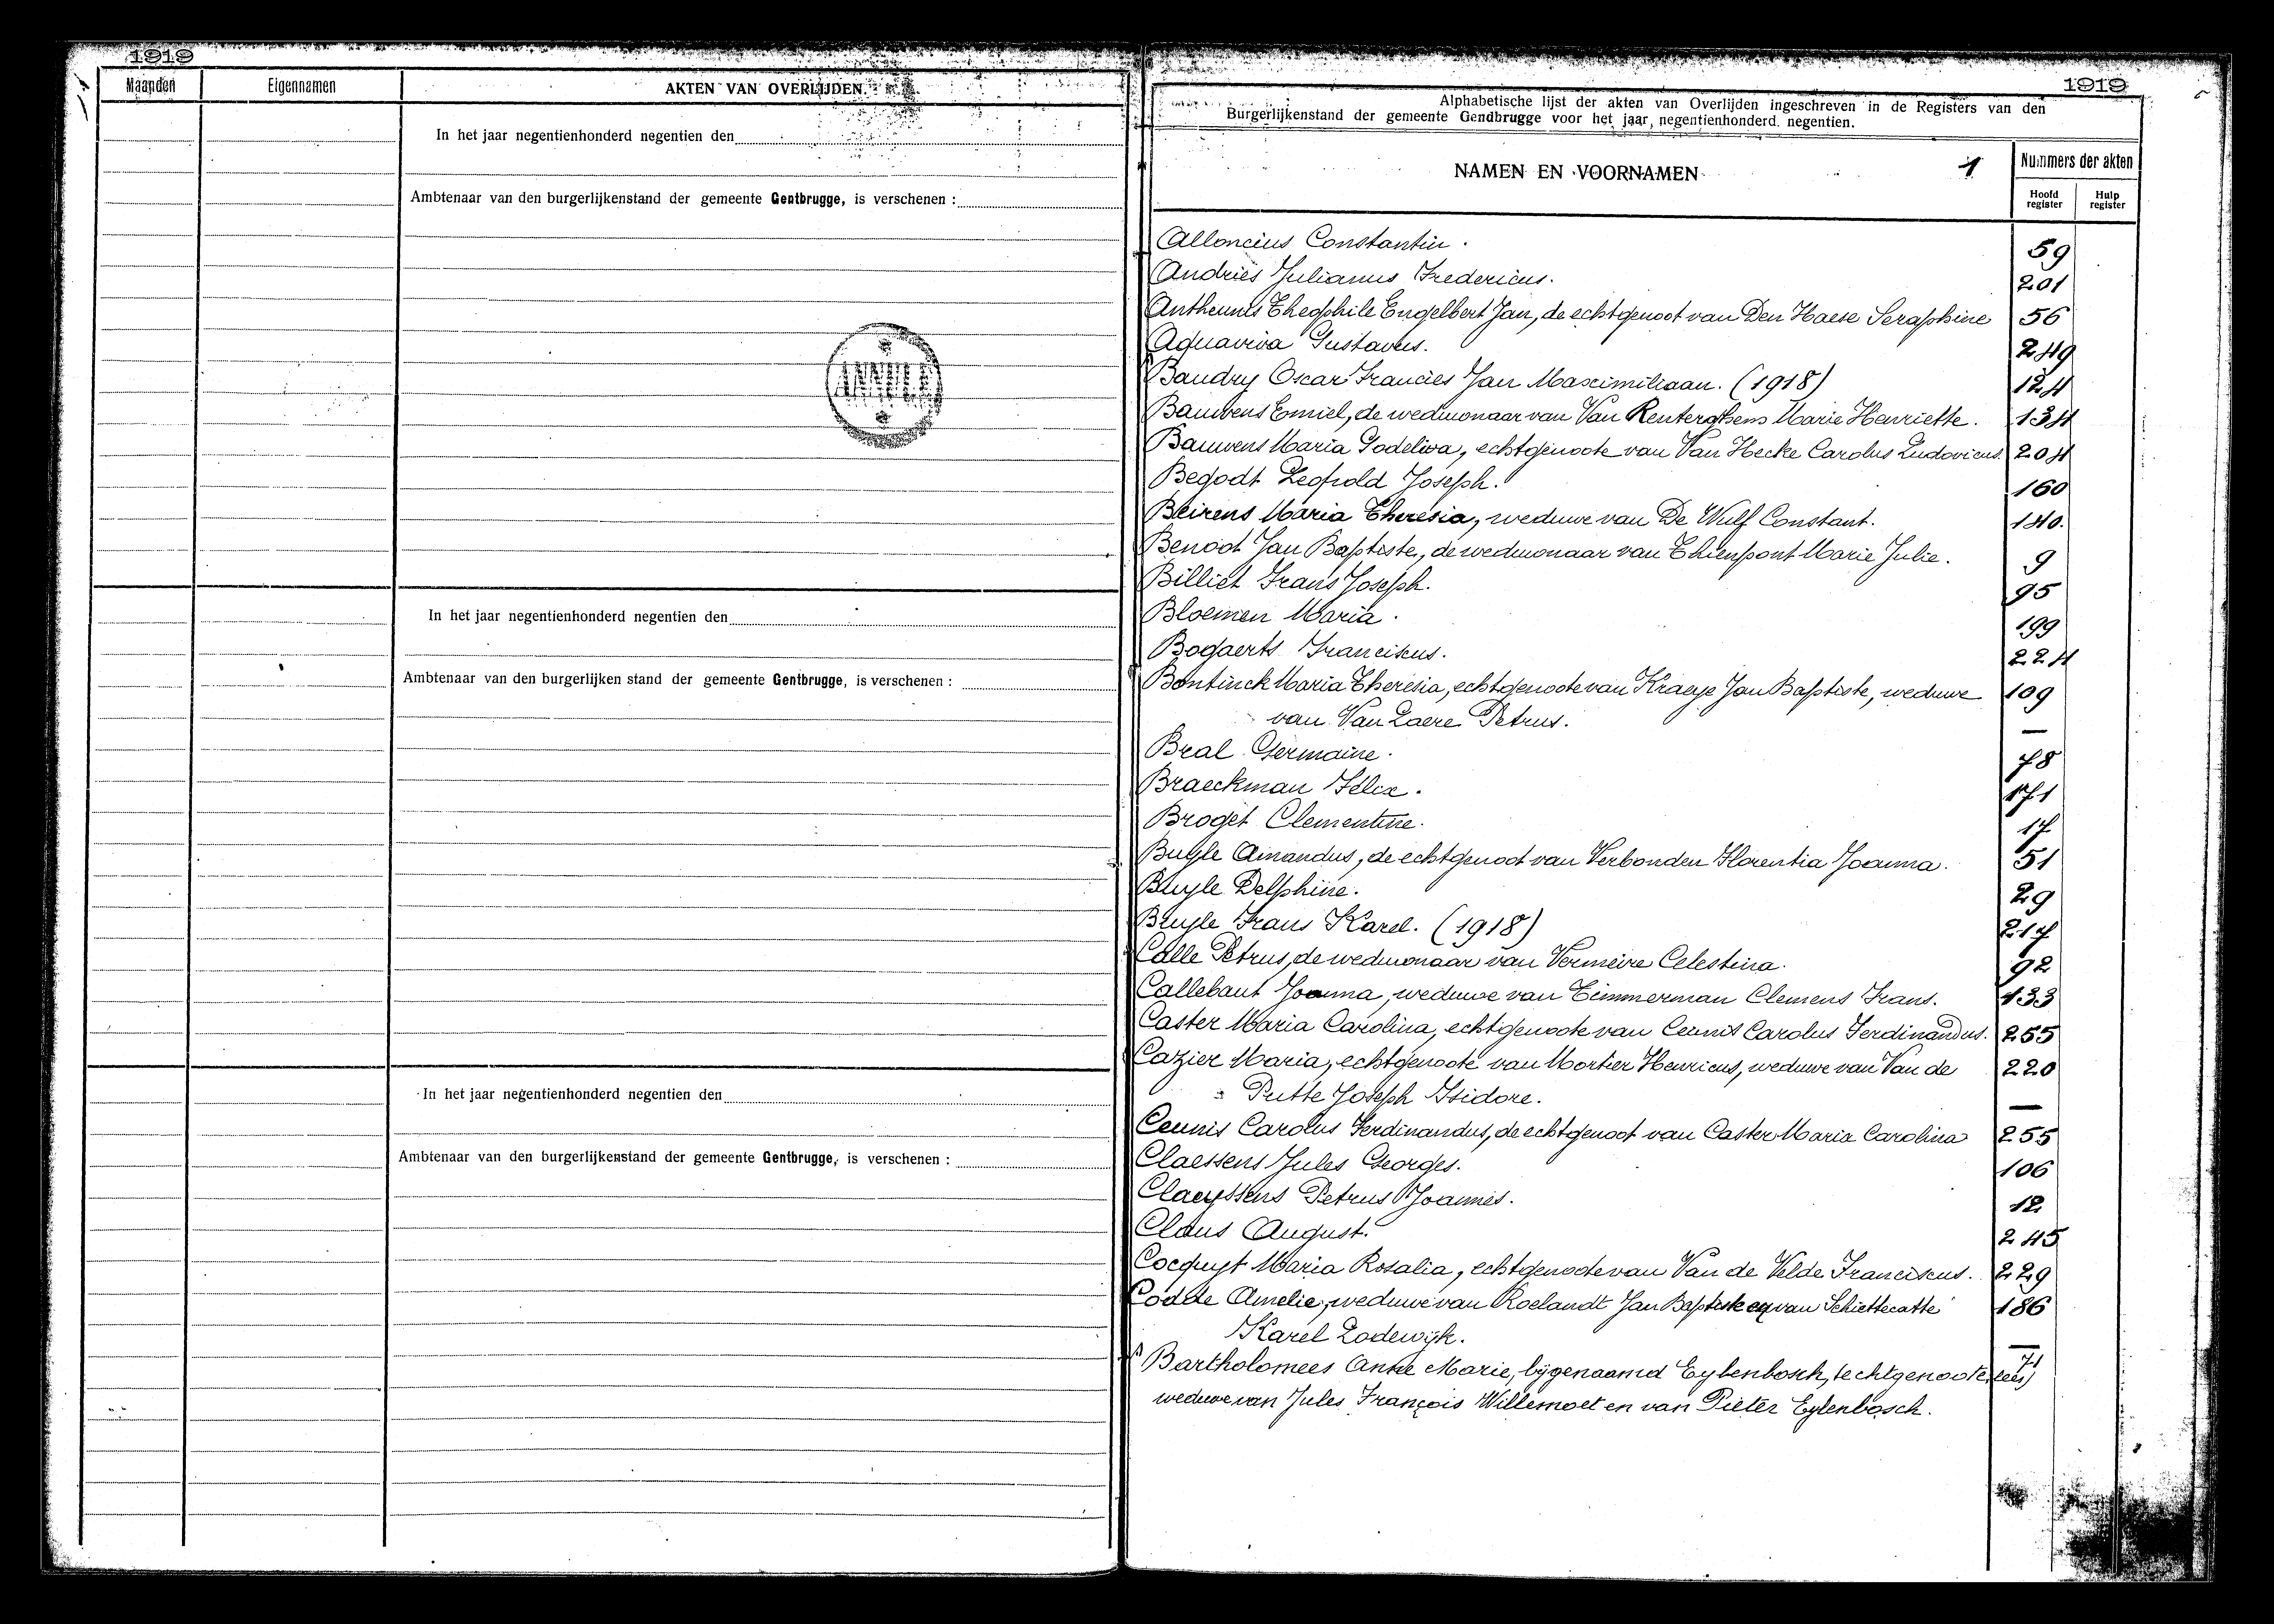 1919
Maanden Eigennamen AKTEN VAN OVERLIJDEN.
In het jaar negentienhonderd negentien den
Ambtenaar van den burgerlijkenstand der gemeente Gentbrugge, is verschenen :
In het jaar negentienhonderd negentien den
Ambtenaar van den burgerlijken stand der gemeente Gentbrugge, is verschenen :
In het jaar negentienhonderd negentien den
Ambtenaar van den burgerlijkenstand der gemeente Gentbrugge, is verschenen :
1919
Alphabetische lijst der akten van Overlijden ingeschreven in de Registers van den
Burgerlijkenstand der gemeente Gendbrugge voor het jaar, negentienhonderd negentien.
NAMEN EN VOORNAMEN 1 Nummers der akten
Hoofd register Hulp register
Alloncius Constantin. 59
Andries Julianus Fredericus. 201
Antheunis Theophile Engelbert Jan, de echtgenoot van Den Haese Seraphine 56
Aquaviva Gustavus. 249
Baudry Oscar Francies Jan Maximiliaan. (1918) 124
Bauwens Emiel, de weduwnaar van Van Renterghem Marie Henriette. 134
Bauwens Maria Godeliva, echtgenoote van Van Hecke Carolus Ludovicus. 204
Begodt Leopold Joseph. 160
Beirens Maria Theresia, weduwe van De Wulf Constant. 140.
Benoot Jan Baptiste, de weduwnaar van Thienpont Marie Julie. 9
Billiet Frans Joseph. 95
Bloemen Maria. 199
Bogaerts Franciscus. 224
Bontinck Maria Theresia, echtgenoote van Kraeye Jan Baptiste, weduwe 109
van Van Laere Petrus. —
Bral Germaine. 78
Braeckman Félix. 171
Broget Clementine. 17
Buyle Amandus, de echtgenoot van Verbonden Florentia Joanna. 51
Buyle Delphine. 29
Buyle Frans Karel. (1918) 217
Calle Petrus, de weduwnaar van Vermeire Celestina. 92
Callebaut Joanna, weduwe van Timmerman Clemens Frans. 133
Caster Maria Carolina, echtgenoote van Ceunis Carolus Ferdinandus. 255
Cazier Maria, echtgenoote van Mortier Henricus, weduwe van Van de 220
Putte Joseph Isidore. —
Ceunis Carolus Ferdinandus, de echtgenoot van Caster Maria Carolina 255
Claessens Jules Georges. 106
Claeyssens Petrus Joannes. 12
Claus August. 245
Cocquyt Maria Rosalia, echtgenoote van Van de Velde Franciscus. 229
Codde Amelie, weduwe van Roelandt Jan Baptiste en van Schiettecatte 186
Karel Lodewijk. —
Bartholomees Anne Marie, bijgenaamd Eylenbosch, (echtgenoote, lees) 71
weduwe van Jules François Willemoet en van Pieter Eylenbosch.